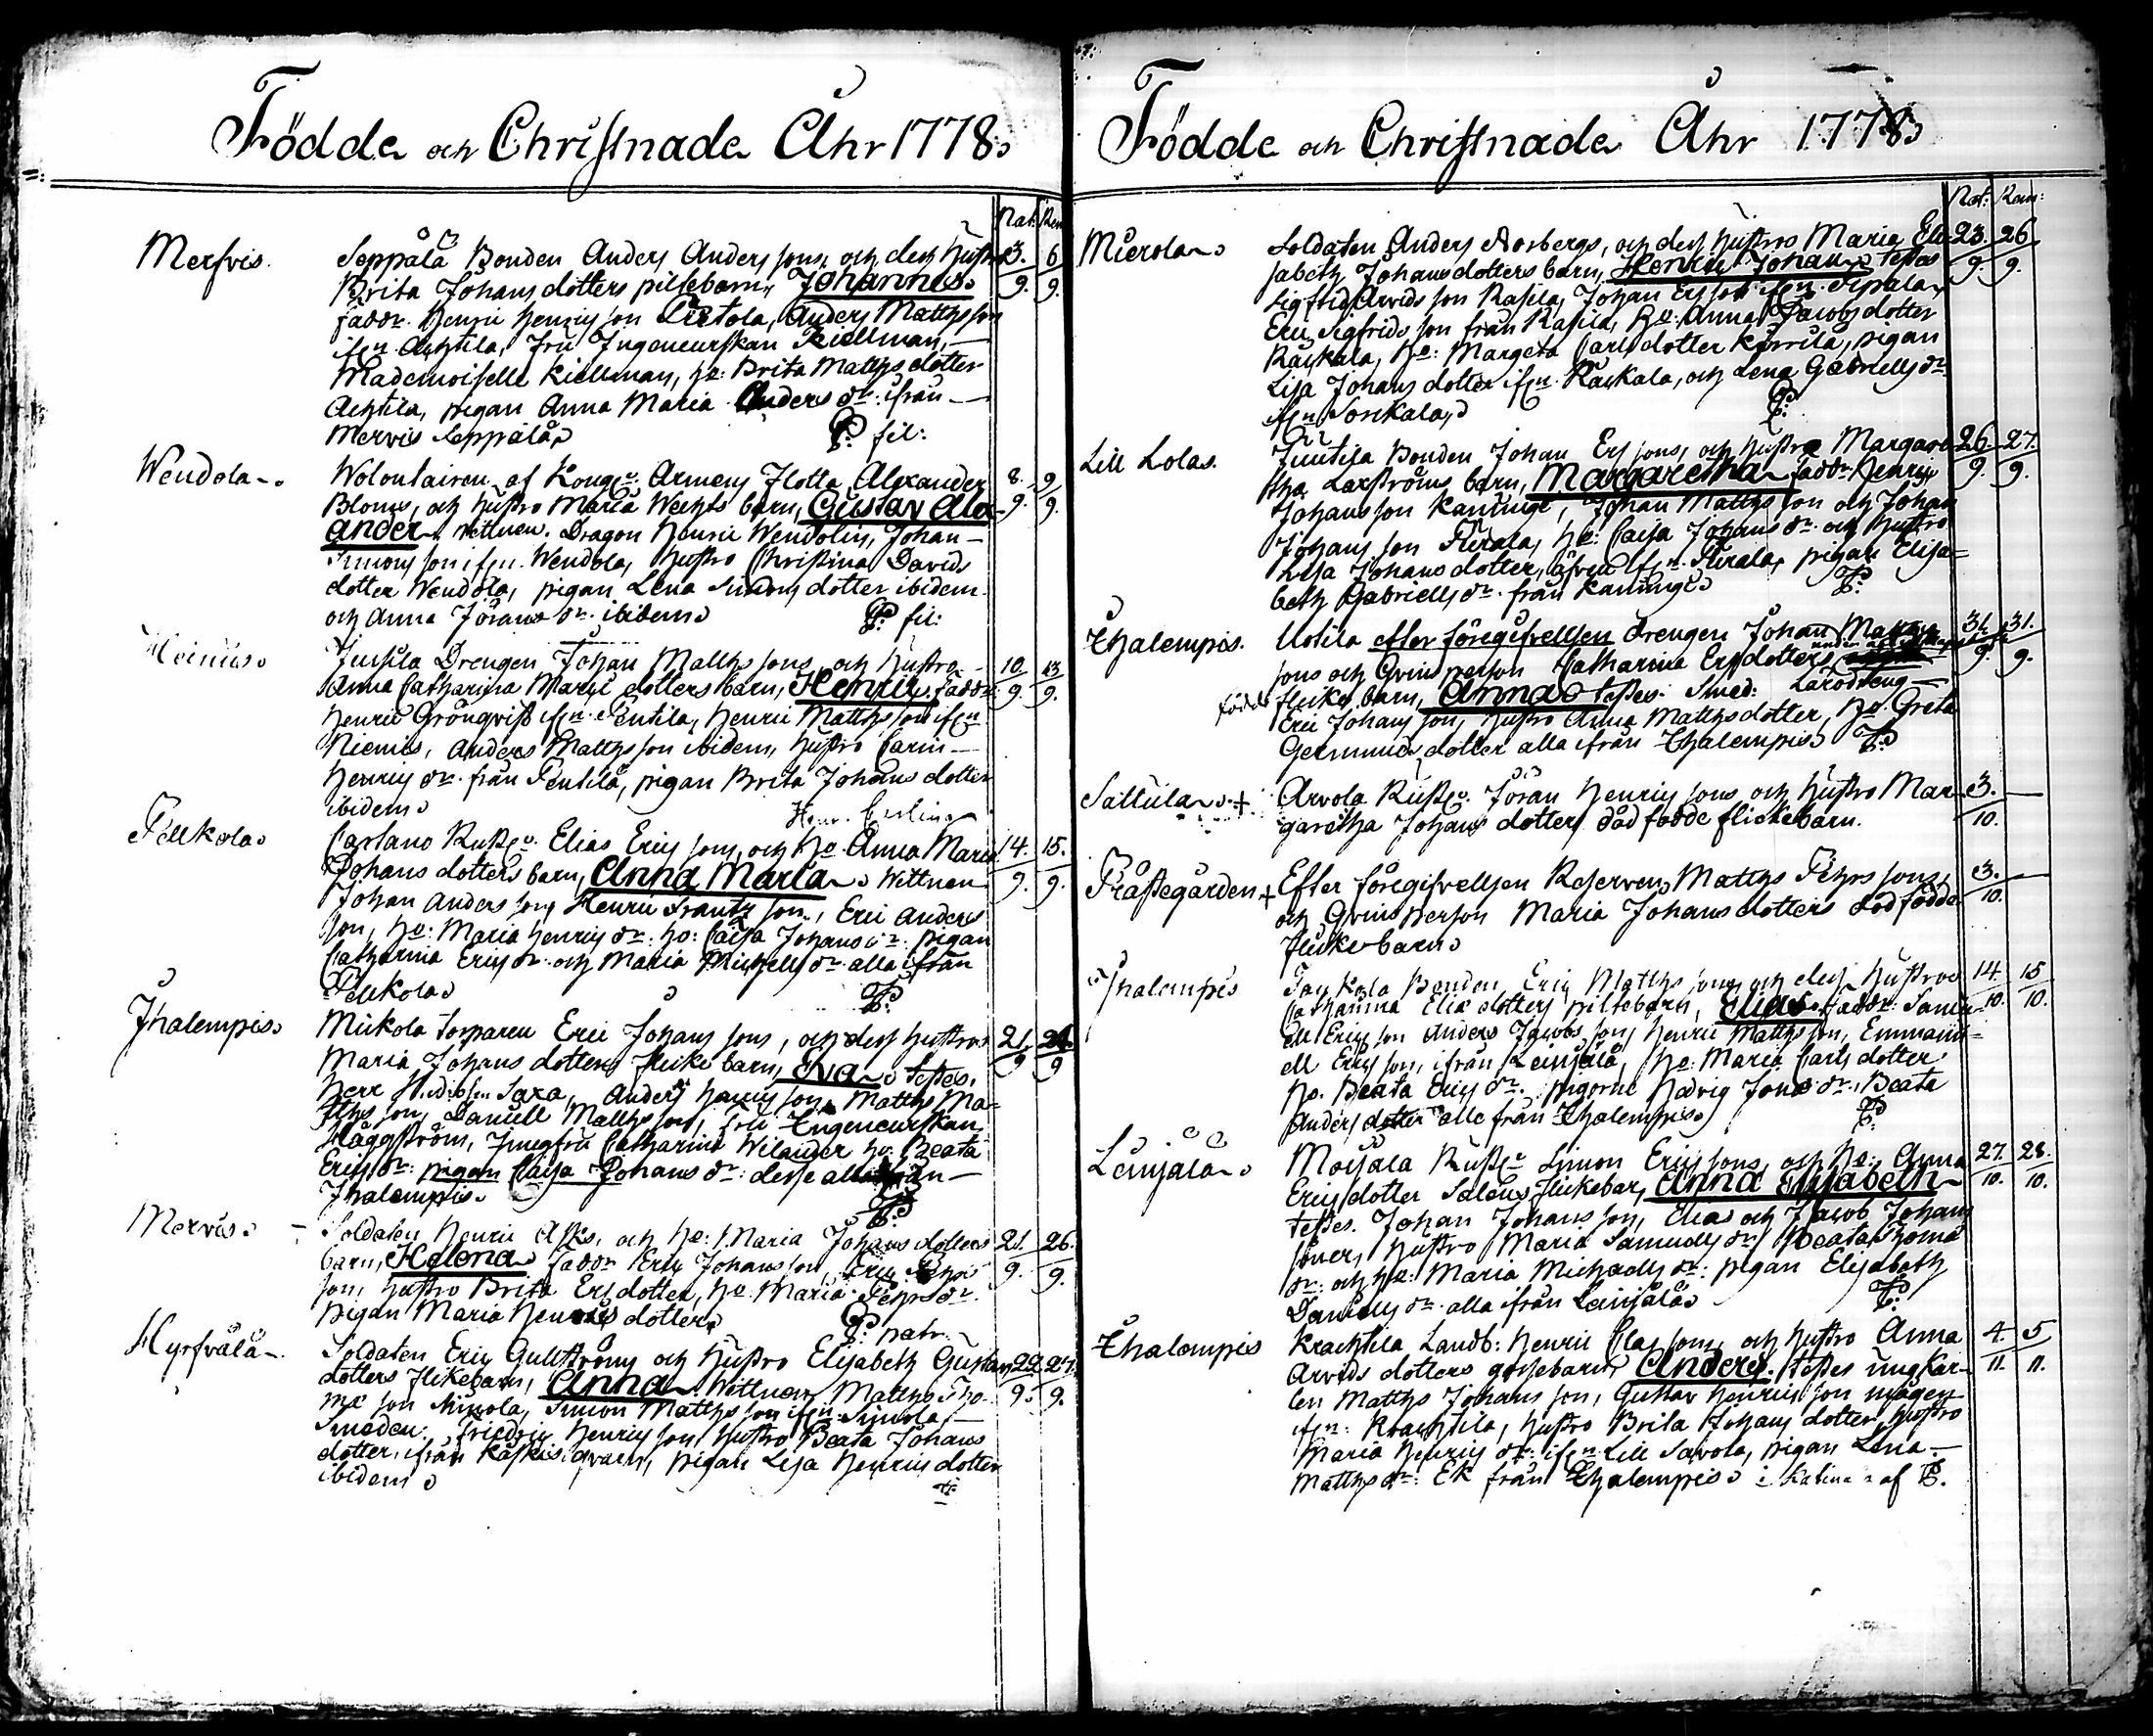 Födde och Christnade Åhr 1778
Nat: Ren
Merfvis. Seppälä Bonden Anders Anders sons, och dess hustr 3. 6
Brita Johans dotters piltebarn, Johannes. 9. 9.
fadd:r Henric Henrics son Anders Matths son
if:n Achtila, Fru Ingeneurskan Kiellman,
Mademoiselle Kiellman, h:o: Brita Matths dotter
Achtila, pigan Anna Maria Anders d:r: ifrån
Mervis Seppälä fil:
Wendola Wolontairen af Kongl: Armens Flotta Alexander 8. 9
Bloms, och hustro Maria Wechts barn, Gustav Alex 9. 9.
ander. Wittnen. Dragon Henric Wendolin, Johan
Simons son if:n Wendola, hustro Christina Davids
dotter Wendola, pigan Lena Simons dotter ibidem
och Anna Jörans d:r ibidem fil:
Jussila Drengen Johan Matths sons, och hustro 10. 13
Anna Catharina dotters barn, Henric, fadd:r 9. 9.
Henric Grönqvist if:n Pentila, Henric Matths son if:n
Niemis, Anders Matths son ibidem, hustro Carin
Henrics d:r från Pentilä, pigan Brita Johans dotter
ibidem
Pellkola Elias Erics sons, och h:o Anna Maria 14. 15.
Johans dotters barn, Anna Maria Wittnen 9. 9.
Johan Anders son, Henric Frants son, Eric Anders
son, h:o: Maria Henrics d:r: h:o: Caisa Johans d:r: pigan
Catharina Erics d:r och Maria Michells d:r alla ifrån
Pellkola
Ihalempis Mickola torparen Eric Johans sons, och dess hustros 21.
Maria Johans dotters flickebarn, Eva testes. 9 9
Herr Saxa, Anders Henrics son, Matths Ma-
tths son, Daniell Matths son, Fru Ingeneurskan
Häggström, Jungfru Catharina Wilander h:o: Beata
Erics d:r: pigan Caisa Johans d:r: desse alla ifrån
Ihalempis
Mervis Soldaten Henric Asks, och h:o: Maria Johans dotters 21. 26.
barn, Helena fadd:r Eric Johans son, Eric
son, hustro Brita Ers dotter, h:o: Maria Pehrs d:r 9. 9.
pigan Maria Henrics dotter patr:
Hyrfvälä Soldaten Eric Gullströms och hustro Elisabeth Gustavs 22. 27.
dotters flickebarn, Anna Wittnen Matths Tho- 9. 9.
mæ son Simola, Simon Matths son if:n Simola,
Smeden Friedric Henrics son, hustro Beata Johans
dotter ifrån Kaskis qvarn, pigan Lisa Henrics dotter
ibidem
Födde och Christnade Åhr 1778
Nat: Ren:
Mierola Soldaten Anders Norbergs, och dess hustros Maria Eli- 23. 26
sabeth Johans dotters barn, Henric Johan testes 9. 9.
Sigfrid Arvids son Rasila, Johan Ers son if:n Sipala
Eric Sigfrids son från Rasila, h:o: Anna Jacobs dotter
Raskala, h:o: Margeta Carls dotter Kurila, pigan
Lisa Johans dotter if:n Raskala, och Lena Gabriells d:r
if:n Sorikala,
Lill Lolas. Juutila Bonden Johan Ers sons, och hustro Margare 26 27.
tha Laxströms barn, Margaretha fadd:r Henric 9. 9.
Johans son Kanunge, Johan Matths son och Johan
Johans son h:o: Caisa Johans d:r och hustro
Lisa Johans dotter, äfven if:n pigan Elisa-
beth Gabriells d:r från Kanunge
Ihalempis. Uotila efter föregifvellsen drengen Johan Matths 31. 31.
sons och Qvins person Catharina Ers dotters 9. 9.
födde flicke barn, Anna testes Smed:
Eric Johans son, hustro Anna Matths dotter, h:o. Greta
dotter alla ifrån Ihalempis
Sattula + Arvola Jöran Henrics sons och hustro Mar- 3. —
garetha Johans dotters död födde flickebarn. 10.
Prästegården + Efter föregifvellsen Reserven Matths Pehrs sons, 3. —
och Qvins person Maria Johans dotters död födde 10.
flicke barn
Ihalempis Bonden Eric Matths sons och dess hustros 14 15
Catharina Eliæ dotters piltebarn, Elias fadd:r Samu- 10. 10.
ell Erics son Anders Jacobs son, Henric Matths son, Emmanu-
ell Erics son, ifrån Leinjälä, h:o: Maria Carls dotter
h:o. Beata Erics d:r. pigorne Hedvig Jons d:r, Beata
Anders dotter alle från Ihalempis
Leinjälä Moisala Simon Erics sons, och h:o: Anna 27. 28.
Erics dotter flickebarn, Anna Elisabeth 10. 10.
testes. Johan Johans son, Elias och Jacob Johans
söner, hustro Maria Samuells d:r, Beata Thomæ
d:r och h:o: Maria Michaells d:r: pigan Elisabeth
Daniells d:r alla ifrån Leinjälä
Ihalempis Krachtila Landb: Henric Clas sons och hustro Anna 4. 5
Arvids dotters gossebarn, Anders. testes ungkar- 11. 11.
len Matths Johans son, Gustav Henrics son
if:n: Krachtila, hustro Brita Johans dotter, hustro
Maria Henrics d:r: if:n Lill Savola, pigan Lena
Matths d:r: Ek från Ihalempis